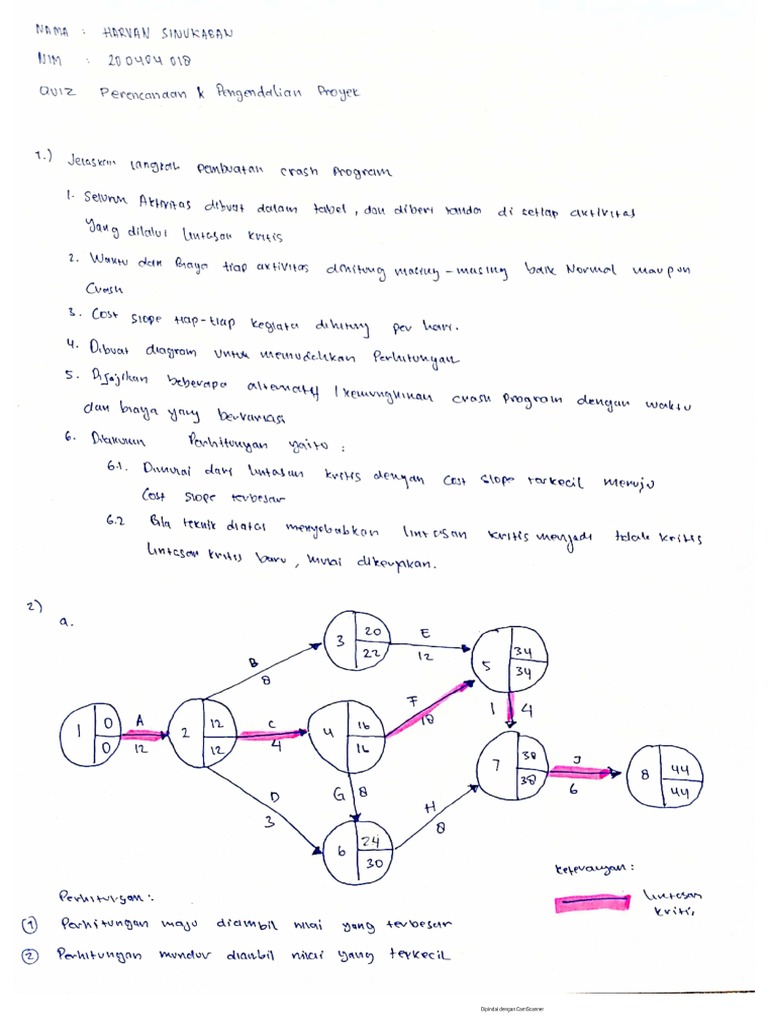 NAMA : HARVAN SINUKABAN
NIM : 200404018
QUIZ Perencanaan & Pengendalian Proyek
1.) Jelaskan langkah pembuatan crash program
1. Seluruh Aktivitas dibuat dalam tabel, dan diberi tanda di setiap aktivitas
yang dilalui lintasan kritis
2. Waktu dan Biaya tiap aktivitas dihitung masing-masing baik Normal maupun
Crash
3. Cost slope tiap-tiap kegiata dihitung per hari.
4. Dibuat diagram untuk memudahkan Perhitungan
5. Disajikan beberapa alternatif / kemungkinan crash program dengan waktu
dan biaya yang bervariasi
6. Dilakukan Perhitungan yaitu :
6.1. Dimulai dari lintasan kritis dengan cost slope terkecil menuju
Cost slope terbesar
6.2 Bila teknik diatas menyebabkan lintasan kritis menjadi tidak kritis
lintasan kritis baru, mulai dikerjakan.
2)
a.
3 20 22
E
12
5 34 34
B
8
1 0 0
A
12
2 12 12
C
4
4 16 16
F
18
I 4
7 38 38
J
6
8 44 44
D
3
G 8
6 24 30
H
8
Keterangan :
lintasan
kritis
Perhitungan :
1 Perhitungan maju diambil nilai yang terbesar
2 Perhitungan mundur diambil nilai yang terkecil
Dipindai dengan CamScanner